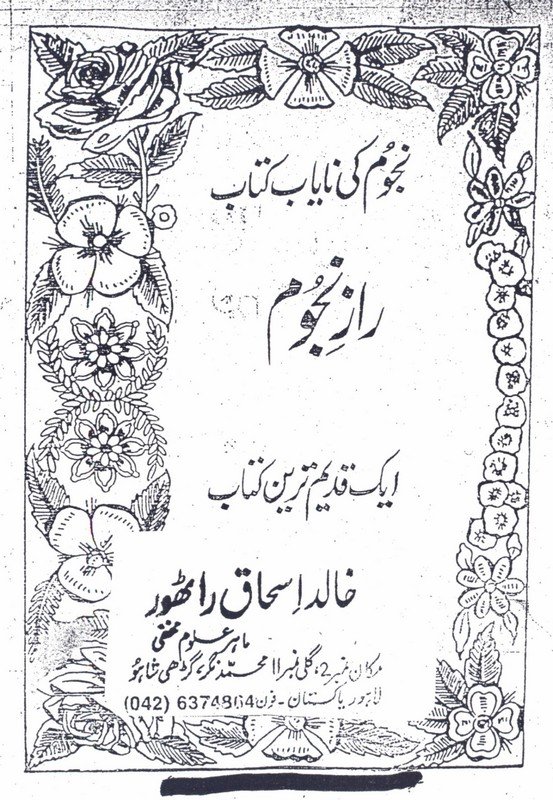 نجوُم کی نایاب کتاب
رازِ نجوُم
ایک قدیم ترین کتاب
خالد اسحاق راٹھور
ماہر علوم مخفی
مکان نمبر 2، گلی نمبر 11 محمد نگر، گڑھی شاہو
لاہور پاکستان - فون 6374864 (042)